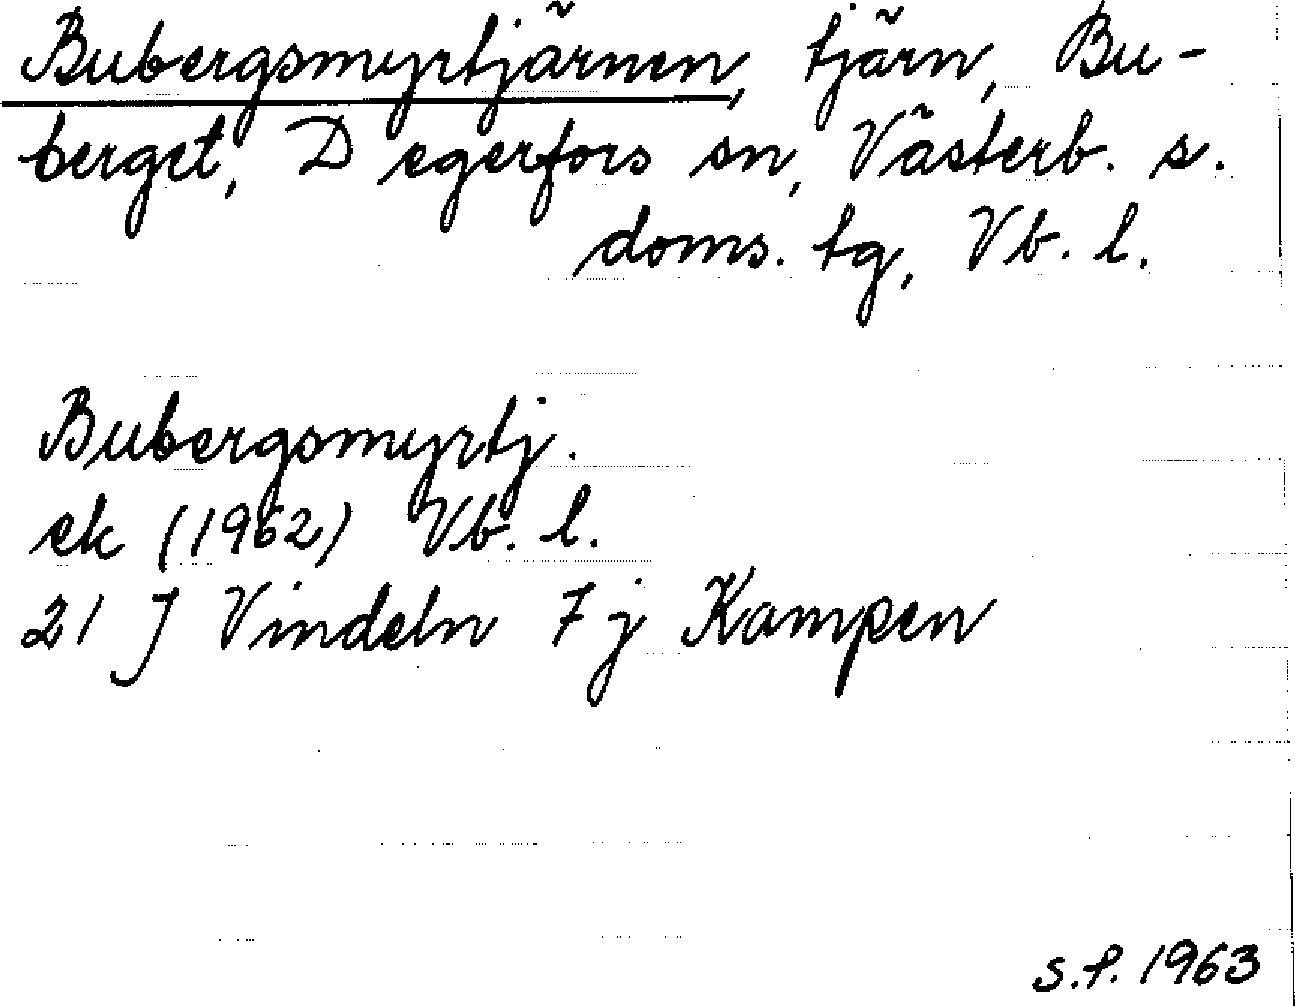 Bubergsmyrtjärnen, tjärn, Bu-
berget, Degerfors sn, Västerb. s.
doms. tg, Vb. l.
Bubergsmyrtj.
ek (1962) Vb. l.
21 J Vindeln 7 j Kampen
s.f. 1963